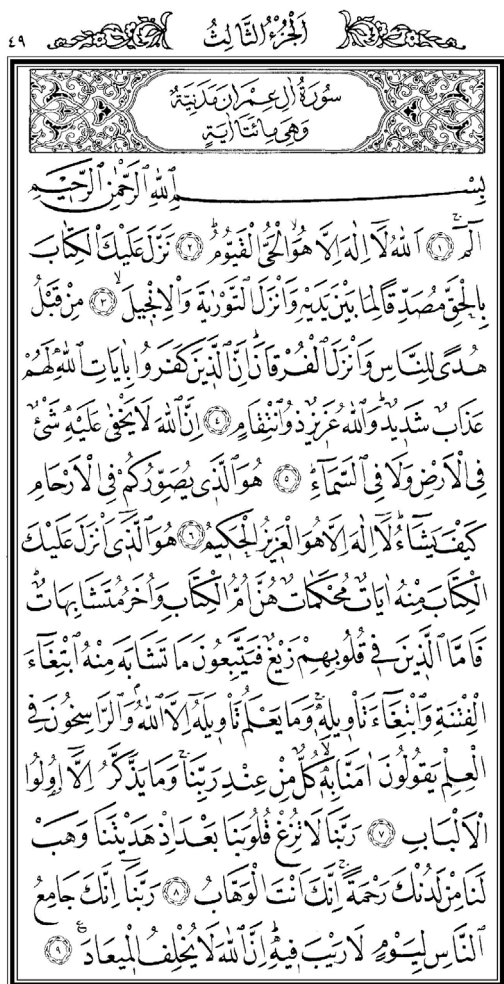 ٤٩ اَلْجُزْءُ الثَّالِثُ
سُورَةُ اٰلِ عِمْرَانَ مَدَنِيَّةٌ
وَهِيَ مِائَتَا اٰيَةٍ
بِسْمِ اللّٰهِ الرَّحْمٰنِ الرَّحِيمِ
الٓمٓ ﴿١﴾ اَللّٰهُ لَٓا اِلٰهَ اِلَّا هُوَ الْحَيُّ الْقَيُّومُ ﴿٢﴾ نَزَّلَ عَلَيْكَ الْكِتَابَ
بِالْحَقِّ مُصَدِّقًا لِمَا بَيْنَ يَدَيْهِ وَاَنْزَلَ التَّوْرٰيةَ وَالْاِنْجِيلَ ﴿٣﴾ مِنْ قَبْلُ
هُدًى لِلنَّاسِ وَاَنْزَلَ الْفُرْقَانَ اِنَّ الَّذِينَ كَفَرُوا بِاٰيَاتِ اللّٰهِ لَهُمْ
عَذَابٌ شَدِيدٌ وَاللّٰهُ عَزِيزٌ ذُو انْتِقَامٍ ﴿٤﴾ اِنَّ اللّٰهَ لَا يَخْفٰى عَلَيْهِ شَيْءٌ
فِي الْاَرْضِ وَلَا فِي السَّمَٓاءِ ﴿٥﴾ هُوَ الَّذِي يُصَوِّرُكُمْ فِي الْاَرْحَامِ
كَيْفَ يَشَٓاءُ لَٓا اِلٰهَ اِلَّا هُوَ الْعَزِيزُ الْحَكِيمُ ﴿٦﴾ هُوَ الَّذِٓي اَنْزَلَ عَلَيْكَ
الْكِتَابَ مِنْهُ اٰيَاتٌ مُحْكَمَاتٌ هُنَّ اُمُّ الْكِتَابِ وَاُخَرُ مُتَشَابِهَاتٌ
فَاَمَّا الَّذِينَ فِي قُلُوبِهِمْ زَيْغٌ فَيَتَّبِعُونَ مَا تَشَابَهَ مِنْهُ ابْتِغَٓاءَ
الْفِتْنَةِ وَابْتِغَٓاءَ تَأْوِيلِهِ وَمَا يَعْلَمُ تَأْوِيلَهُٓ اِلَّا اللّٰهُ وَالرَّاسِخُونَ فِي
الْعِلْمِ يَقُولُونَ اٰمَنَّا بِهِ كُلٌّ مِنْ عِنْدِ رَبِّنَا وَمَا يَذَّكَّرُ اِلَّٓا اُولُوا
الْاَلْبَابِ ﴿٧﴾ رَبَّنَا لَا تُزِغْ قُلُوبَنَا بَعْدَ اِذْ هَدَيْتَنَا وَهَبْ
لَنَا مِنْ لَدُنْكَ رَحْمَةً اِنَّكَ اَنْتَ الْوَهَّابُ ﴿٨﴾ رَبَّنَٓا اِنَّكَ جَامِعُ
النَّاسِ لِيَوْمٍ لَا رَيْبَ فِيهِ اِنَّ اللّٰهَ لَا يُخْلِفُ الْمِيعَادَ ﴿٩﴾